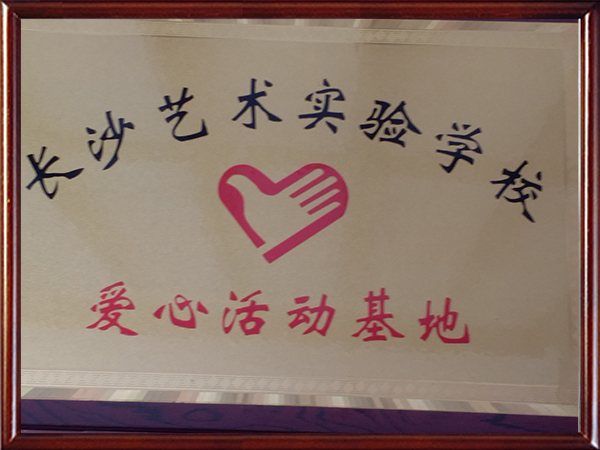 长沙艺术实验学校
爱心活动基地